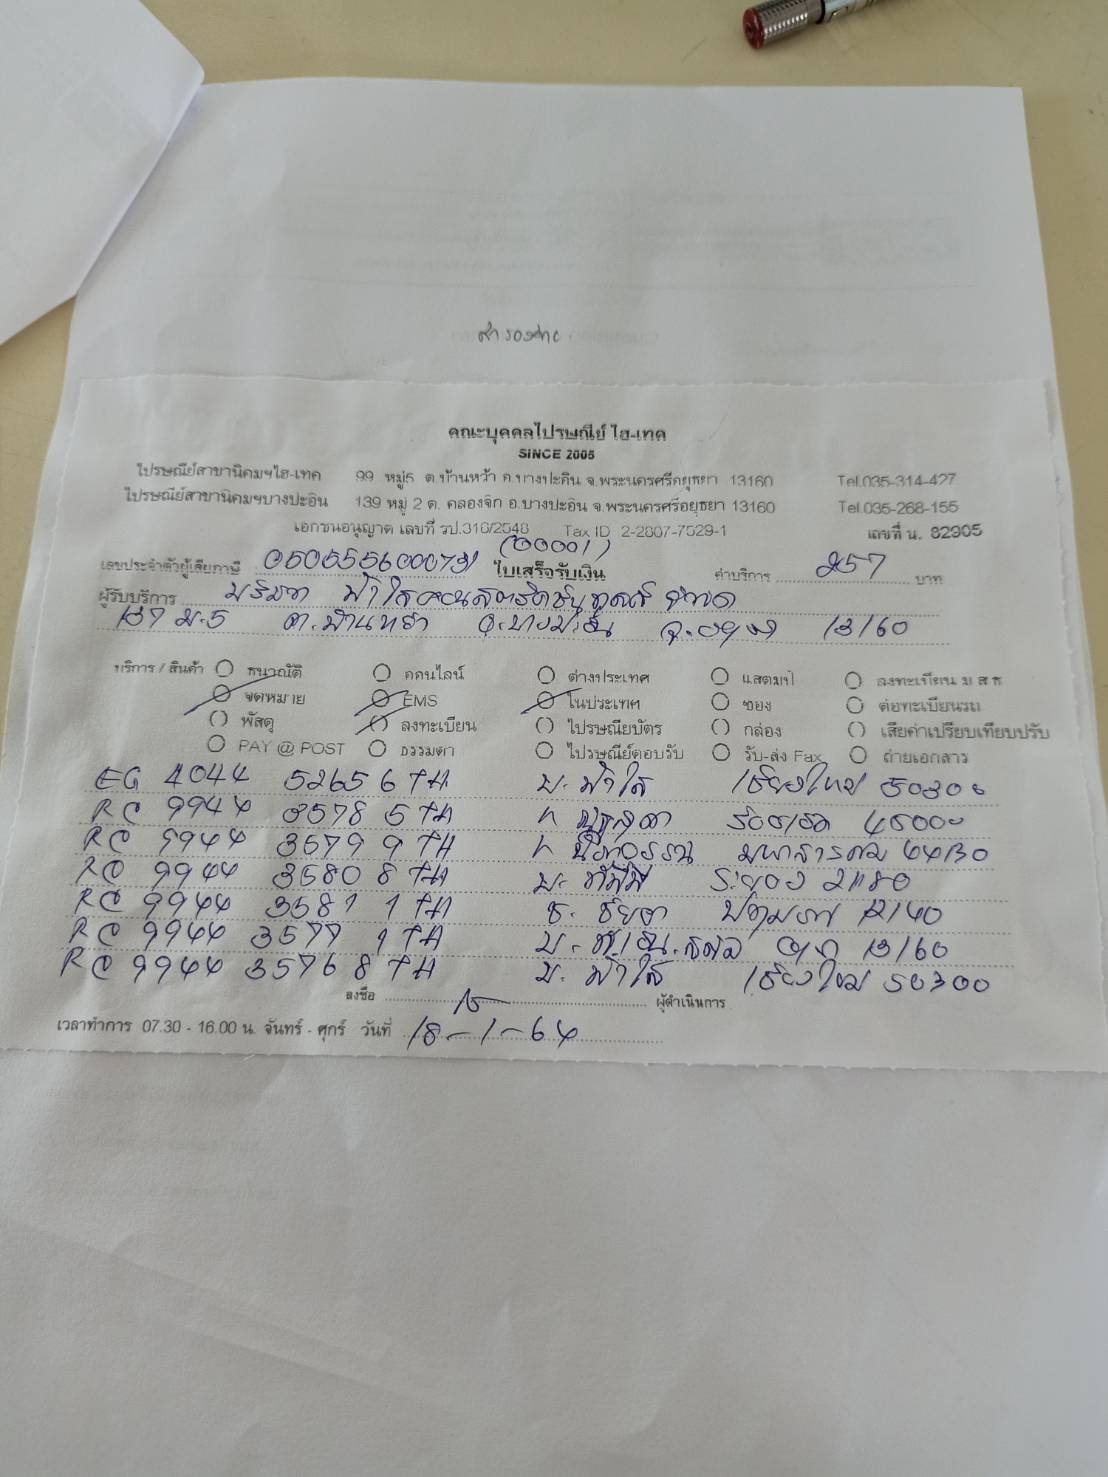 สำรองจ่าย
คณะบุคคลไปรษณีย์ ไฮ-เทค
SINCE 2005
ไปรษณีย์สาขานิคมฯไฮ-เทค 99 หมู่5 ต.บ้านหว้า อ.บางปะอิน จ.พระนครศรีอยุธยา 13160 Tel.035-314-427
ไปรษณีย์สาขานิคมฯบางปะอิน 139 หมู่ 2 ต. คลองจิก อ.บางปะอิน จ.พระนครศรีอยุธยา 13160 Tel.035-268-155
เอกชนอนุญาต เลขที่ รป.316/2548 Tax ID 2-2807-7529-1 เลขที่ น. 82905
(00001)
เลขประจำตัวผู้เสียภาษี 0505556000731 ใบเสร็จรับเงิน ค่าบริการ 257 บาท
ผู้รับบริการ บริษัท ฟ้าใสคอนสตรัคชั่น จำกัด
137 ม.5 ต.บ้านหว้า อ.บางปะอิน จ.อยุธยา 13160
บริการ / สินค้า ธนาณัติ ออนไลน์ ต่างประเทศ แสตมป์ ลงทะเบียน ม ส ท
จดหมาย EMS ในประเทศ ซอง ต่อทะเบียนรถ
พัสดุ ลงทะเบียน ไปรษณียบัตร กล่อง เสียค่าเปรียบเทียบปรับ
PAY @ POST ธรรมดา ไปรษณีย์ตอบรับ รับ-ส่ง Fax ถ่ายเอกสาร
EG 4044 5265 6 TH บ. ฟ้าใส เชียงใหม่ 50300
RC 9944 3578 5 TH ร้อยเอ็ด 45000
RC 9944 3579 9 TH มหาสารคาม 44130
RC 9944 3580 8 TH ระยอง 21180
RC 9944 3581 1 TH ปทุมธานี 12140
RC 9944 3577 1 TH 13160
RC 9944 3576 8 TH บ. ฟ้าใส เชียงใหม่ 50300
ลงชื่อ ผู้ดำเนินการ
เวลาทำการ 07.30 - 16.00 น. จันทร์ - ศุกร์ วันที่ 18-1-64